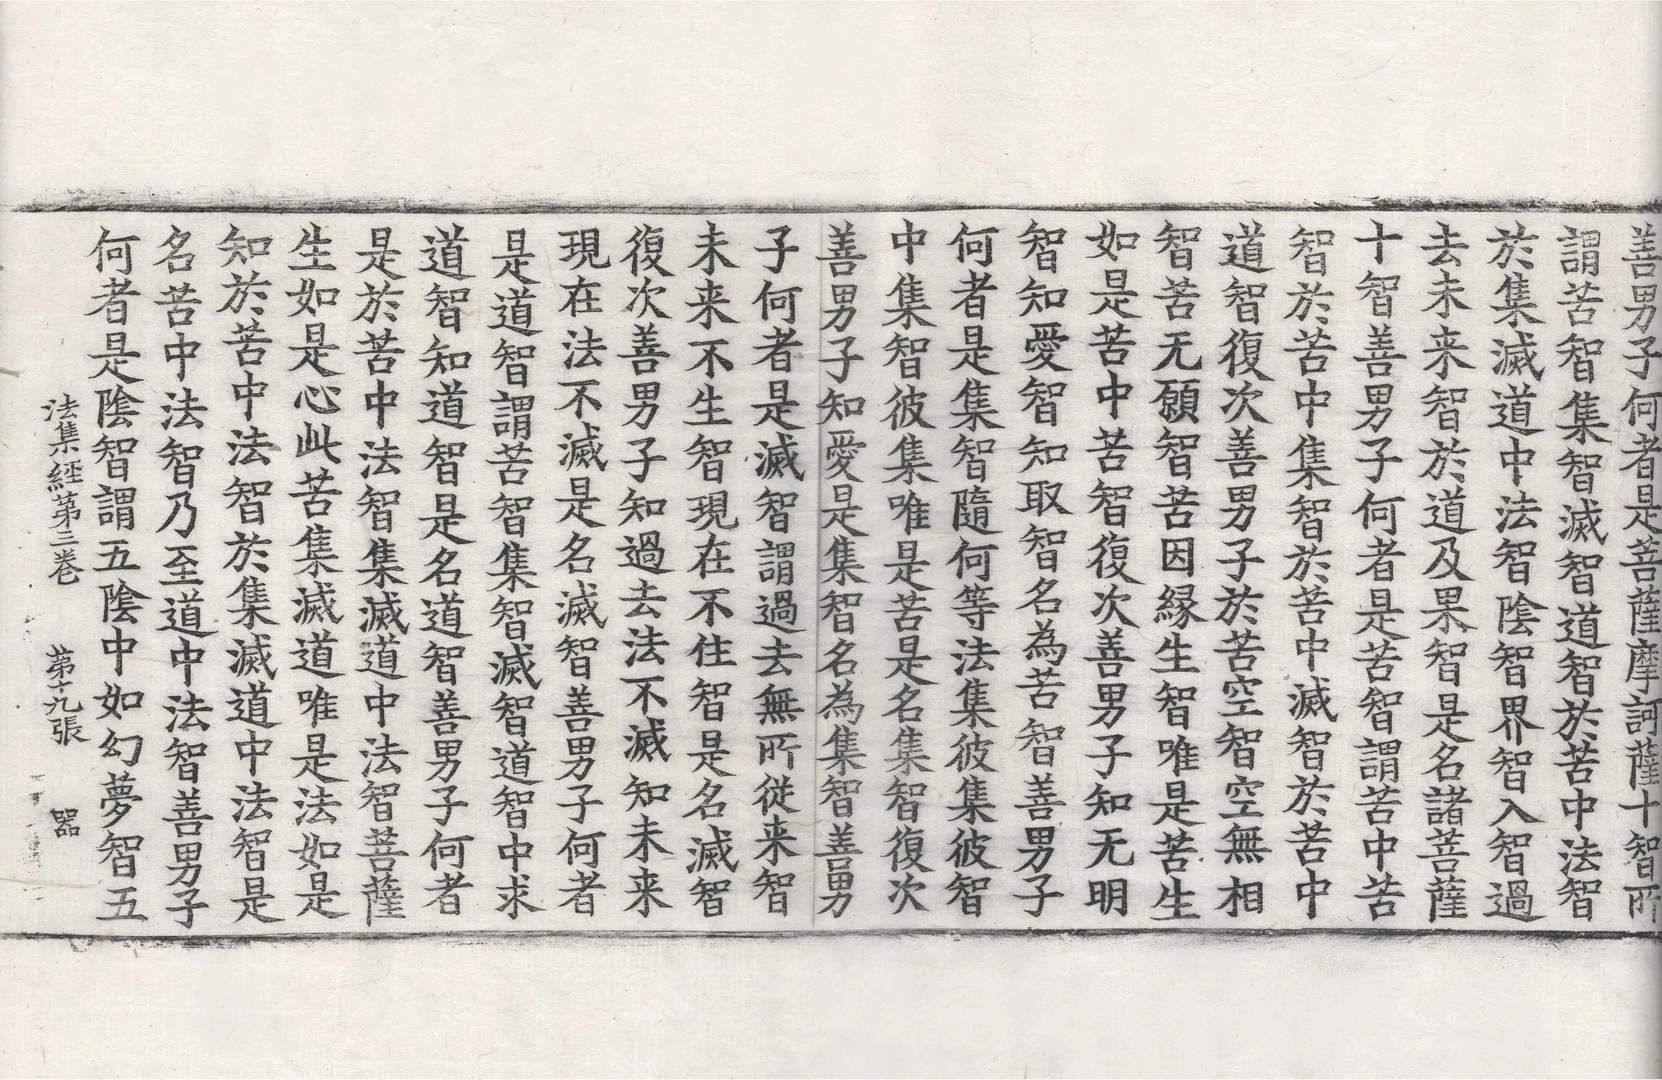 善男子何者是菩薩摩訶薩十智所
謂苦智集智滅智道智於苦中法智
於集滅道中法智陰智界智入智過
去未来智於道及果智是名諸菩薩
十智善男子何者是苦智謂苦中苦
智於苦中集智於苦中滅智於苦中
道智復次善男子於苦空智空無相
智苦无願智苦因縁生智唯是苦生
如是苦中苦智復次善男子知无明
智知愛智知取智名為苦智善男子
何者是集智隨何等法集彼集彼智
中集智彼集唯是苦是名集智復次
善男子知愛是集智名為集智善男
子何者是滅智謂過去無所従来智
未来不生智現在不住智是名滅智
復次善男子知過去法不滅知未来
現在法不滅是名滅智善男子何者
是道智謂苦智集智滅智道智中求
道智知道智是名道智善男子何者
是於苦中法智集滅道中法智菩薩
生如是心此苦集滅道唯是法如是
知於苦中法智於集滅道中法智是
名苦中法智乃至道中法智善男子
何者是陰智謂五陰中如幻夢智五
法集經第三卷　第十九張　器